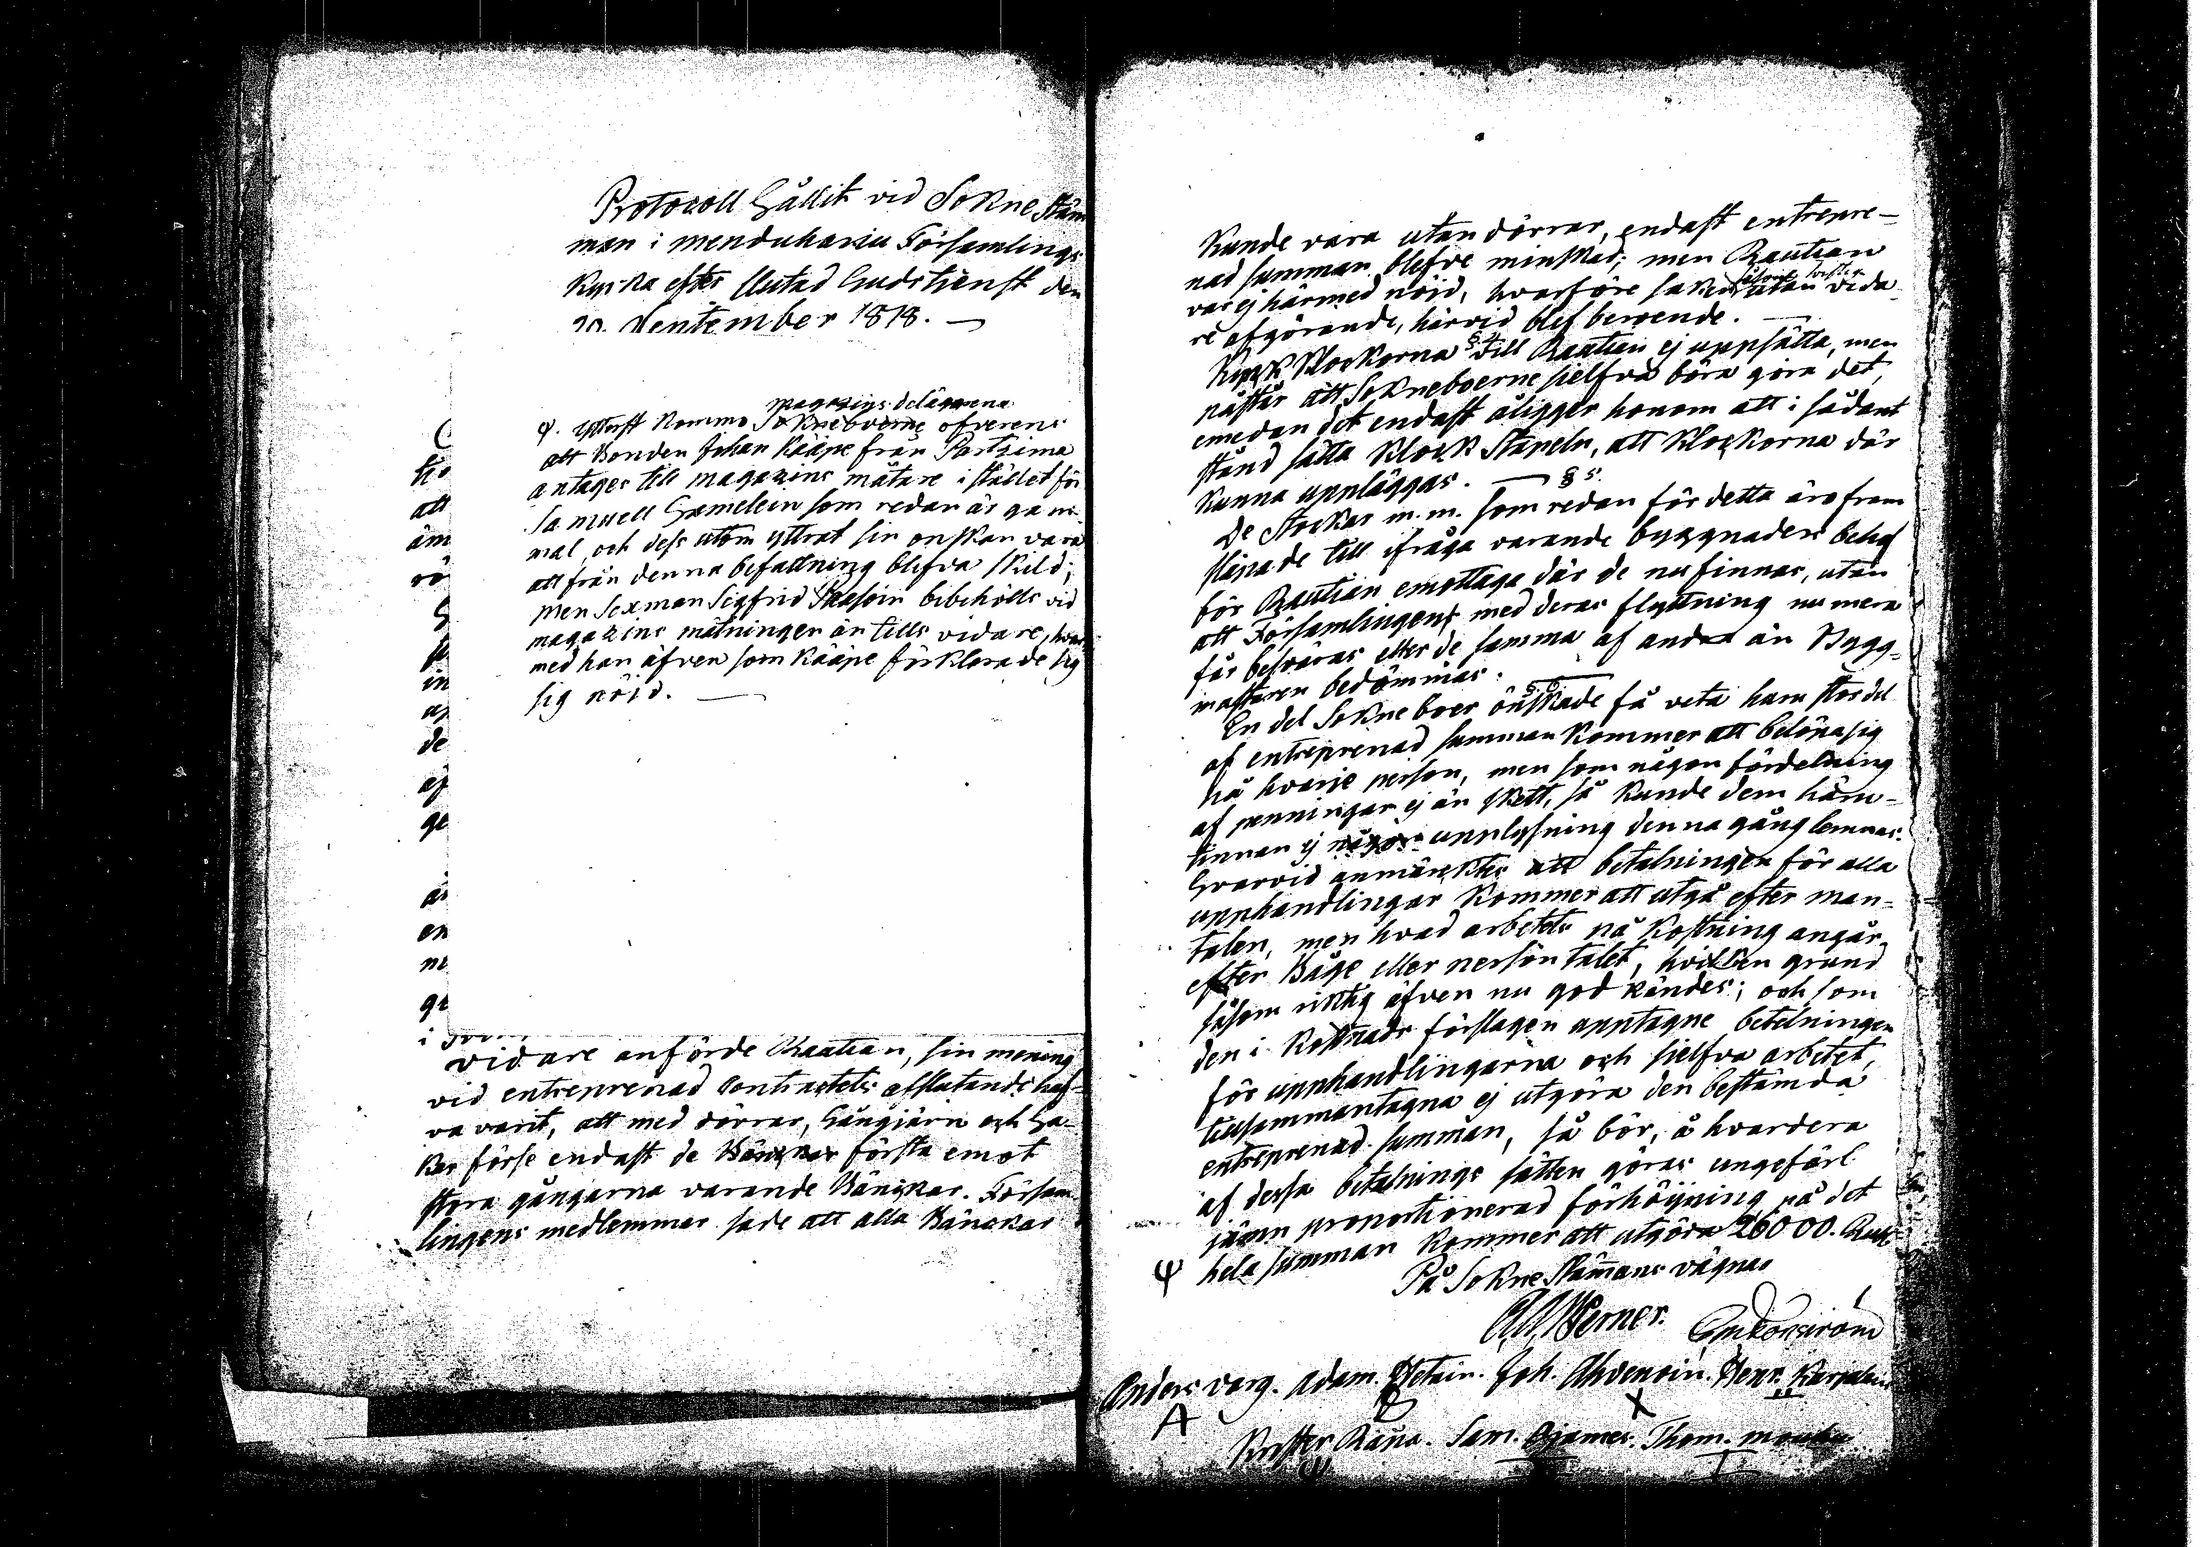 Protocoll hållit vid Sokne Stäm
man i menduharju Församlings
Kyrka efter slutad Gudstienst den
20. September 1818. —
magazins delägarena
φ. ytterst Kommo Sokneboerne öfverens
att Bonden Johan Kääpe från Partzima
antages till magazins mätare i stället för
Samuell Hamelein som redan är gam
mal, och dess utom yttrat sin onskan vara
att från denna befattning blifva skild;
men Sexman Sigfrid Ikäsoin bibehölls vid
magazins mätningen än tills vidare, hvar
med han äfven som Kääpe förklarade sig
sig nöjd. —
C
ho
att
äm
rö
in
de
ef
ge
är
en
ne
ge
i
vidare anförde Rautian, sin mening
vid entreprenad Contractets afslutande haf-
va varit, att med dörrar, Gångjärn och Ha-
kar förse endast de Bänkar första emot
stora gångarna varande Bänkar. Försam
lingens medlemmar sade att alla Bänckar
Kunde vara utan dörrar, endast entrepre-
nad summan blefve minskad; men Rautian
var ej härmed nöjd, hvarföre saken utan vida
re afgörande, härvid blef beroende. —
§ 4.
Kyrk Klockorna vill Rautian ej uppsätta, men
påstår att Sokneboerne sielfva böra göra det,
emedan det endast åligger honom att i sådant
stånd sätta Klock Stapeln, att Klockorna där
Kunna uppläggas. — § 5.
De Stockar m.m. som redan för detta äro fram
släpade till ifråga varande byggnaders behof
bör Rautian emottaga där de nu finnas, utan
att Församlingen med deras flyttning nu mera
får besväras eller de samma af andra än Bygg-
mästaren bedömmas.
§ 6.
En del Sokneboer önskade få veta huru stor del
af entreprenad summan Kommer att belöpa sig
på hvarje person, men som någon fördelning
af penningar ej än skett, så Kunde dem häru-
tinnan ej någon upplysning denna gång lemnas.
Hvarvid anmärcktes att betalningen för alla
upphandlingar Kommer att utgå efter man-
talen, men hvad arbetets på Kostning angår
efter Båge eller person talet, hvilken grund
såsom riktig äfven nu god kändes; och som
den i Kostnads förslagen upptagne betalningen
för upphandlingarna och sielfva arbetet,
tillsammantagna ej utgöra den bestämda
entreprenad summan, så bör, å hvardera
af dessa betalnings sätten göras ungefärl.
jämn proportionerad förhöijning på det
hela summan Kommer att utgöra 26000. Rub
φ
På Sokne Stämans vägnar
Werner.
Anders varg. Adam. Joh. Ahvenoin. Henr. Karjalain
A X
Krister Räna. Sam. Thom.